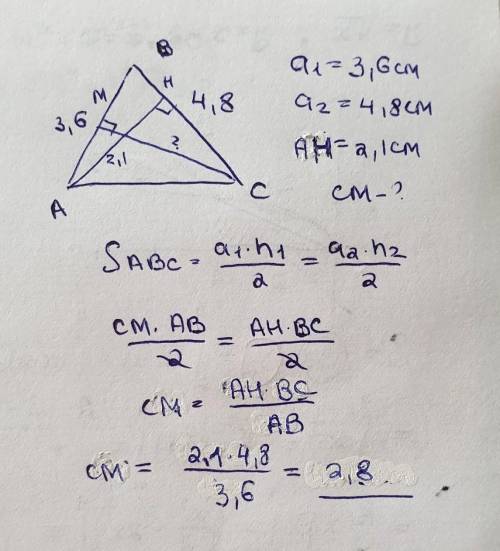 B
H
M
4,8
3,6
?
2,1
A
C
a1 = 3,6см
a2 = 4,8см
AH = 2,1см
CM - ?
SABC = a1·h1/2 = a2·h2/2
CM·AB/2 = AH·BC/2
CM = AH·BC/AB
CM = 2,1·4,8/3,6 = 2,8